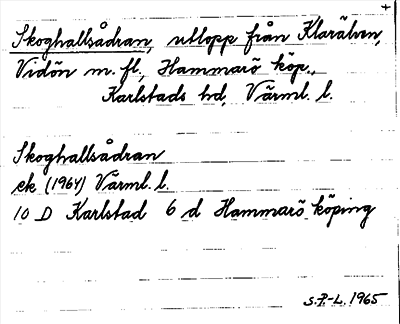 +
Skoghallsådran, utlopp från Klarälven,
Vidön m. fl., Hammarö köp.,
Karlstads hd, Värml. l.
Skoghallsådran
ek (1964) Värml. l.
10 D Karlstad 6 d Hammarö köping
S.P-L. 1965